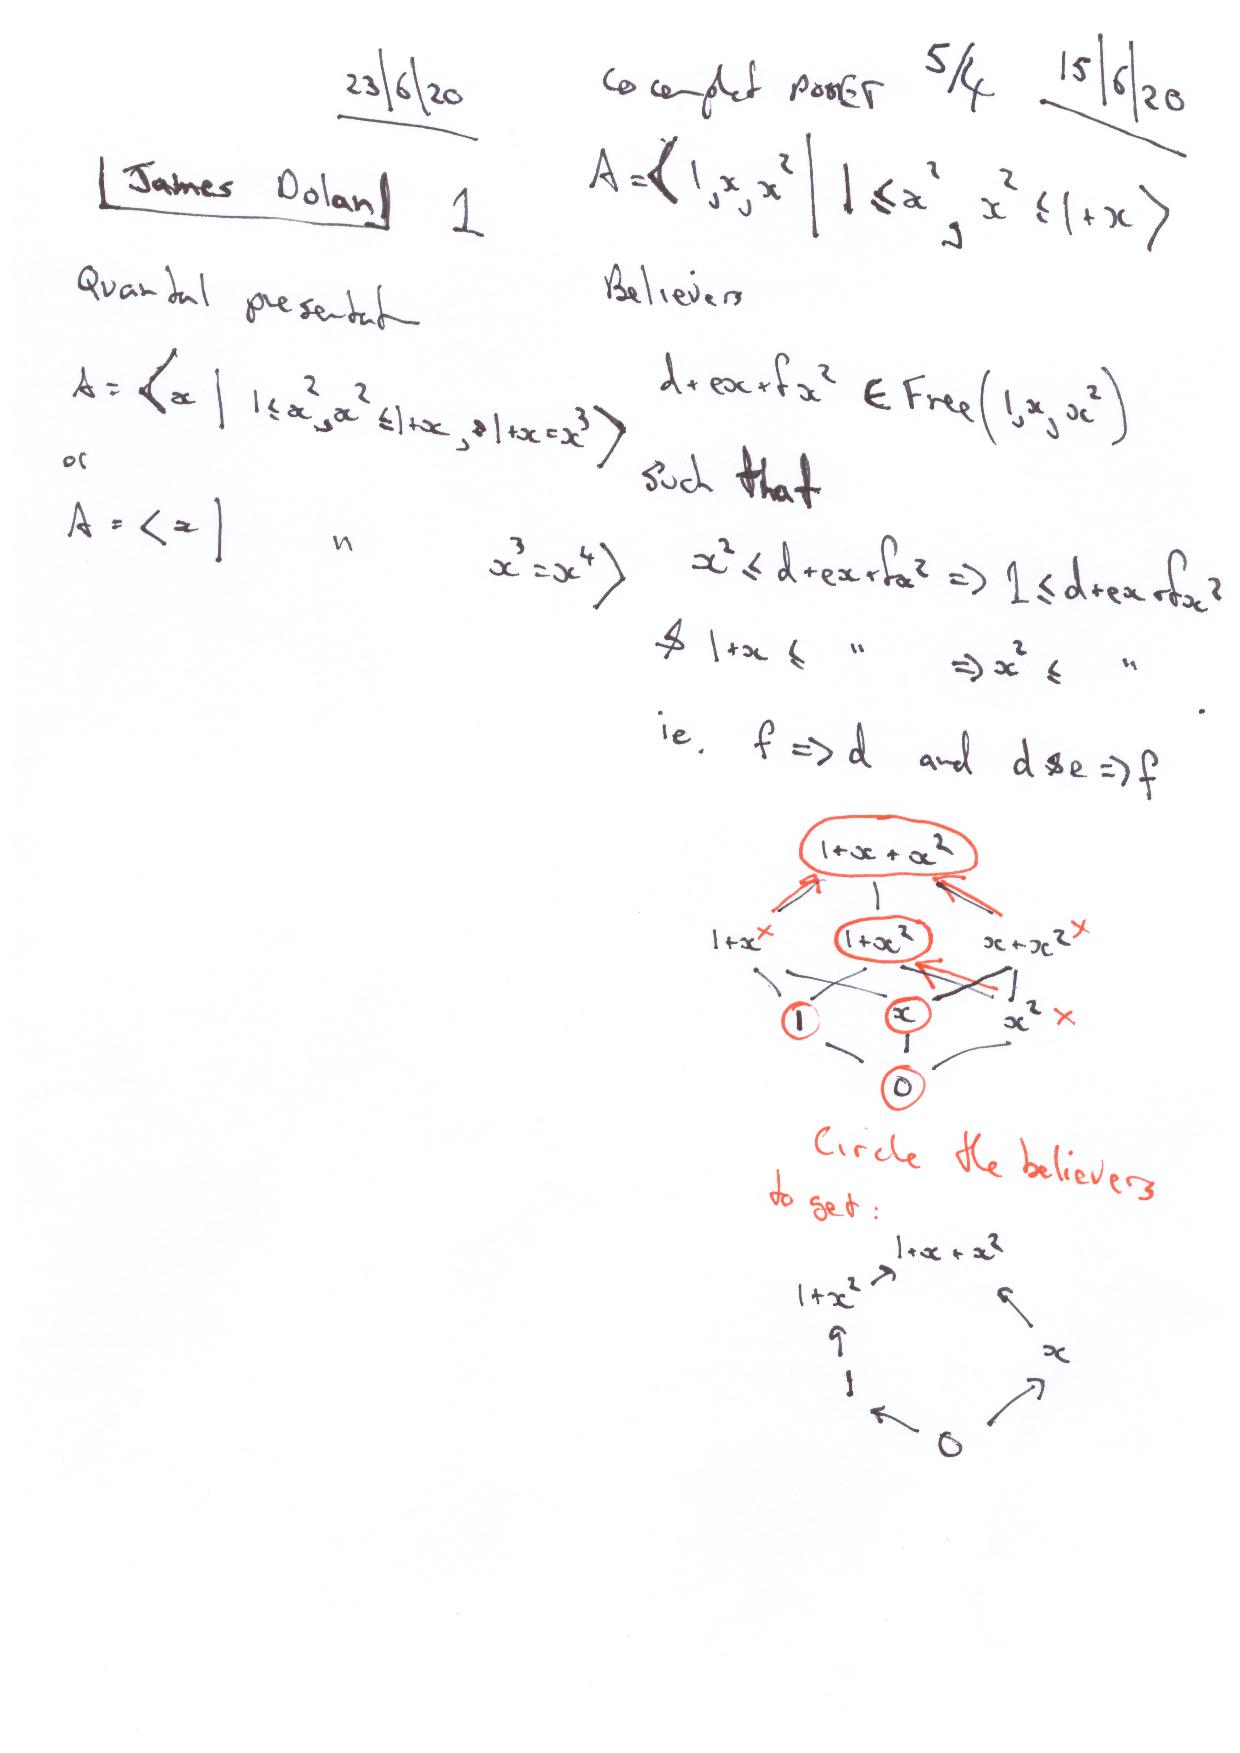 23/6/20
James Dolan 1
Quantal presentat
A = ⟨x | 1≤x², x²≤1+x, 1+x=x³⟩
or
A = ⟨x | " x³=x⁴⟩
Cocomplet POSET 5/4 15/6/20
A=⟨1,x,x² | 1≤x², x²≤1+x⟩
Believers
d+ex+fx² ∈ Free(1,x,x²)
such that
x² ≤ d+ex+fx² => 1≤d+ex+fx²
& 1+x ≤ " => x² ≤ "
ie. f => d and d&e => f
1+x+x²
1+x x 1+x² x+x² x
1 x x² x
0
Circle the believers
to get:
1+x+x²
1+x²
x
1
0